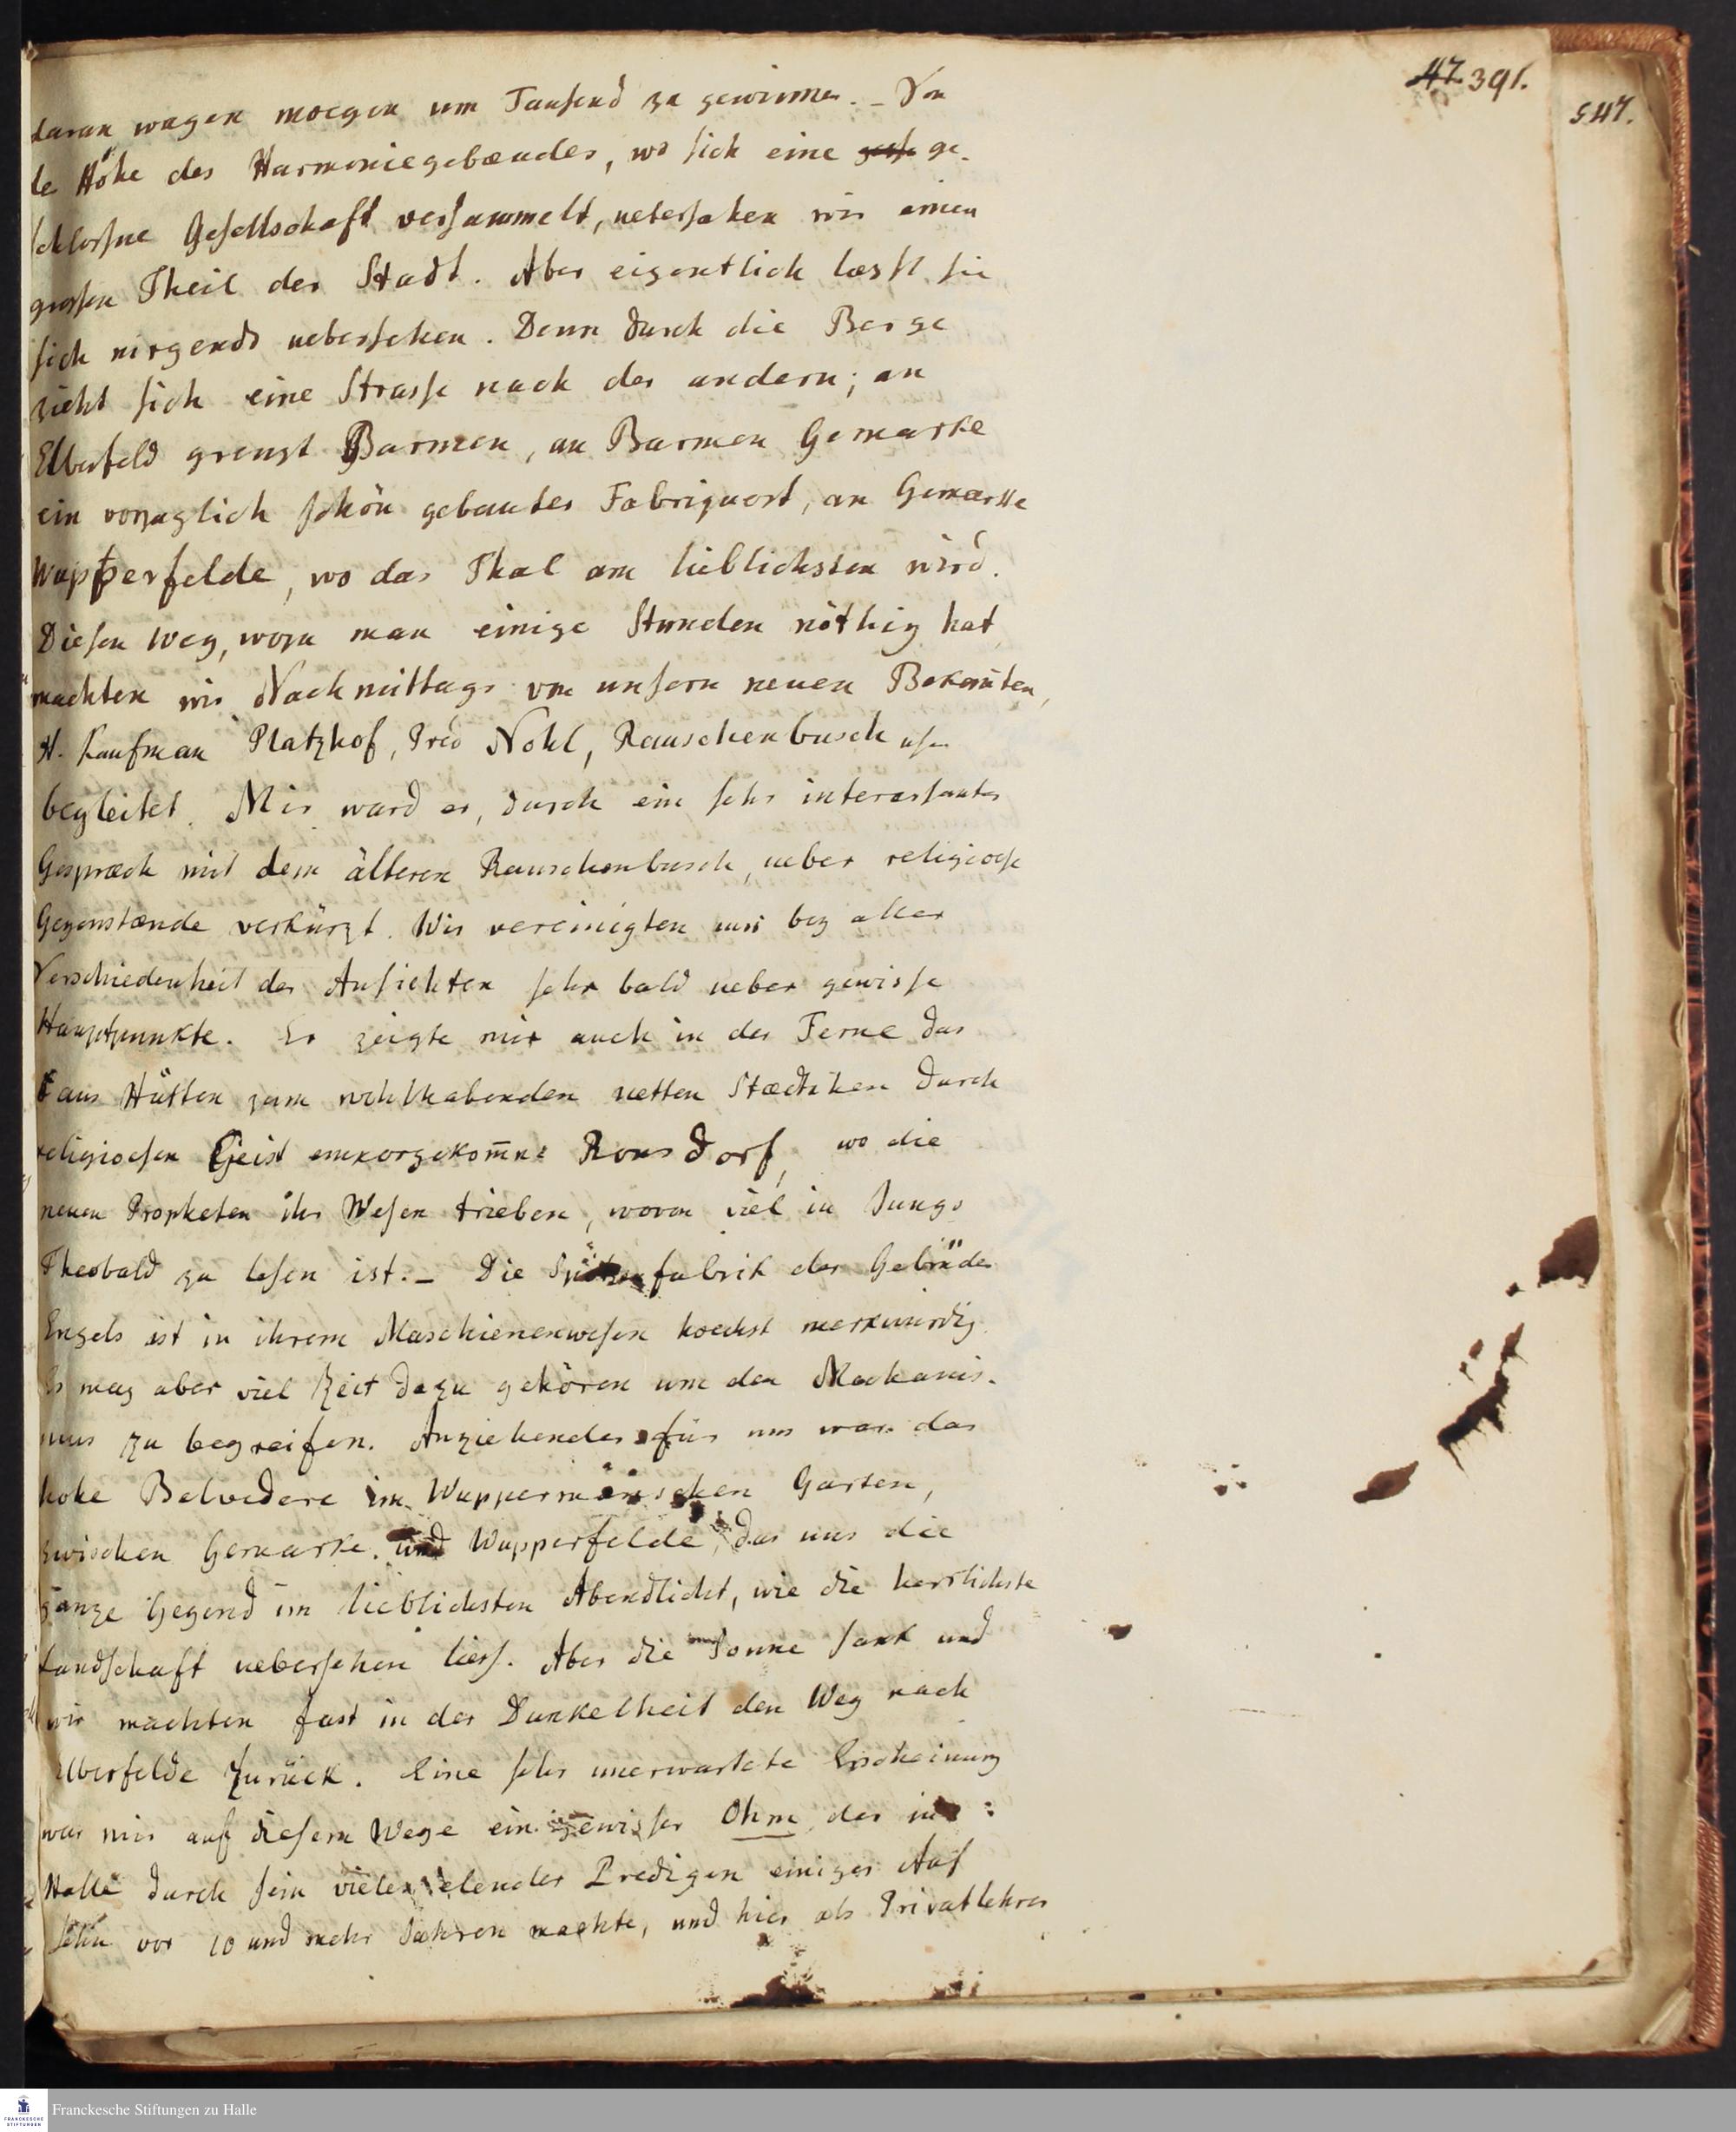 47 391.
547.
daran wagen moegen um Tausend zu gewinnen. – Von
de Höhe des Harmoniegebæudes, wo sich eine ge-
schlossne Gesellschaft versammelt, uebersahen wir einen
grossen Theil der Stadt. Aber eigentlich læsst sie
sich nirgends uebersehen. Denn durch die Berge
zieht sich eine Strasse nach der andern; an
Elberfeld grenzt Barmen, an Barmen Gemarke
ein vorzuglich schön gebautes Fabriquort, an Gemarke
Wupperfelde, wo das Thal am lieblichsten wird.
Diesen Weg, wozu man einige Stunden nöthig hat
machten wir Nachmittags von unsern neuen Bekan̄ten,
H. Kaufman Platzhof, Pred Nohl, Rauschenbusch usw
begleitet. Mir ward er, durch ein sehr interessantes
Gespræch mit dem älteren Rauschenbusch, ueber religioese
Gegenstænde verkürzt. Wir vereinigten uns bey aller
Verschiedenheit der Ansichten sehr bald ueber gewisse
Hauptpunkte. Er zeigte mir auch in der Ferne das
aus Hütten zum wohlhabenden netten Stædtchen durch
religioesen Geist emporgekom̄ne Ronsdorf, wo die
neuen Propheten ihr Wesen trieben, wovon viel in Jungs
Theobald zu lesen ist. – Die Spitzenfabrik der Gebrüder
Engels ist in ihrem Maschienenwesen hoechst merkwürdig
Es mag aber viel Zeit dazu gehören um den Mechanis-
mus zu begreifen. Anziehender für uns war das
hohe Belvedere im Wuppermänschen Garten,
zwischen Gemarke und Wupperfelde, das uns die
ganze Gegend im lieblichsten Abendlicht, wie die herrlichste
Landschaft uebersehen liess. Aber die Sonne sank und
wir machten fast in der Dunkelheit den Weg nach
Elberfelde zurück. Eine sehr unerwartete Erscheinung
war mir auf diesem Wege ein gewisser Ohm, der in
Halle durch sein vieles elendes Predigen einiges Auf
sehn vor 10 und mehr Jahren machte, und hier als Privatlehrer
Franckesche Stiftungen zu Halle
FRANCKESCHE
STIFTUNGEN